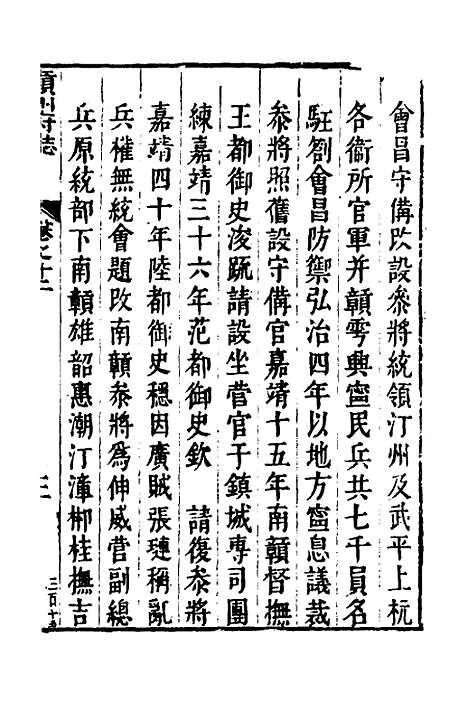 會昌守備改設叅將統領汀州及武平上杭
各衞所官軍并贛雩興寧民兵共七千員名
駐劄會昌防禦弘治四年以地方寧息議裁
叅將照舊設守備官嘉靖十五年南贛督撫
王都御史浚䟽請設坐營官于鎮城專司團
練嘉靖三十六年范都御史欽　請復叅將
嘉靖四十年陸都御史穩因廣賊張璉稱亂
兵權無統會題改南贛叅將為伸威營副總
兵原統部下南贛雄韶惠潮汀漳郴桂撫吉
贛州府志
卷之十二
三
三百十